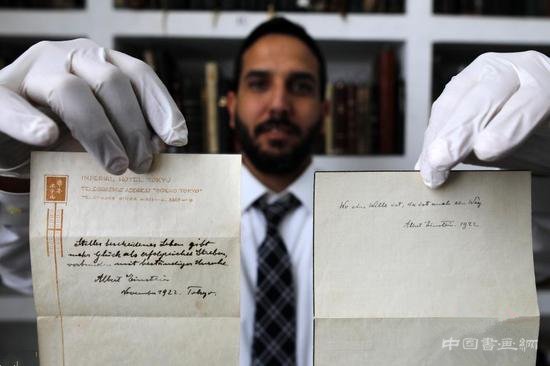 IMPERIAL HOTEL TOKYO
TELEGRAPHIC ADDRESS
TELEPHONE GINZA
ホテル
Stilles bescheidenes Leben gibt
mehr Glück als erfolgreiches Streben,
verbunden mit beständiger Unruhe.
Albert Einstein
November 1922. Tokyo.
Wo ein Wille ist, da ist auch ein Weg
Albert Einstein. 1922
中国書画網